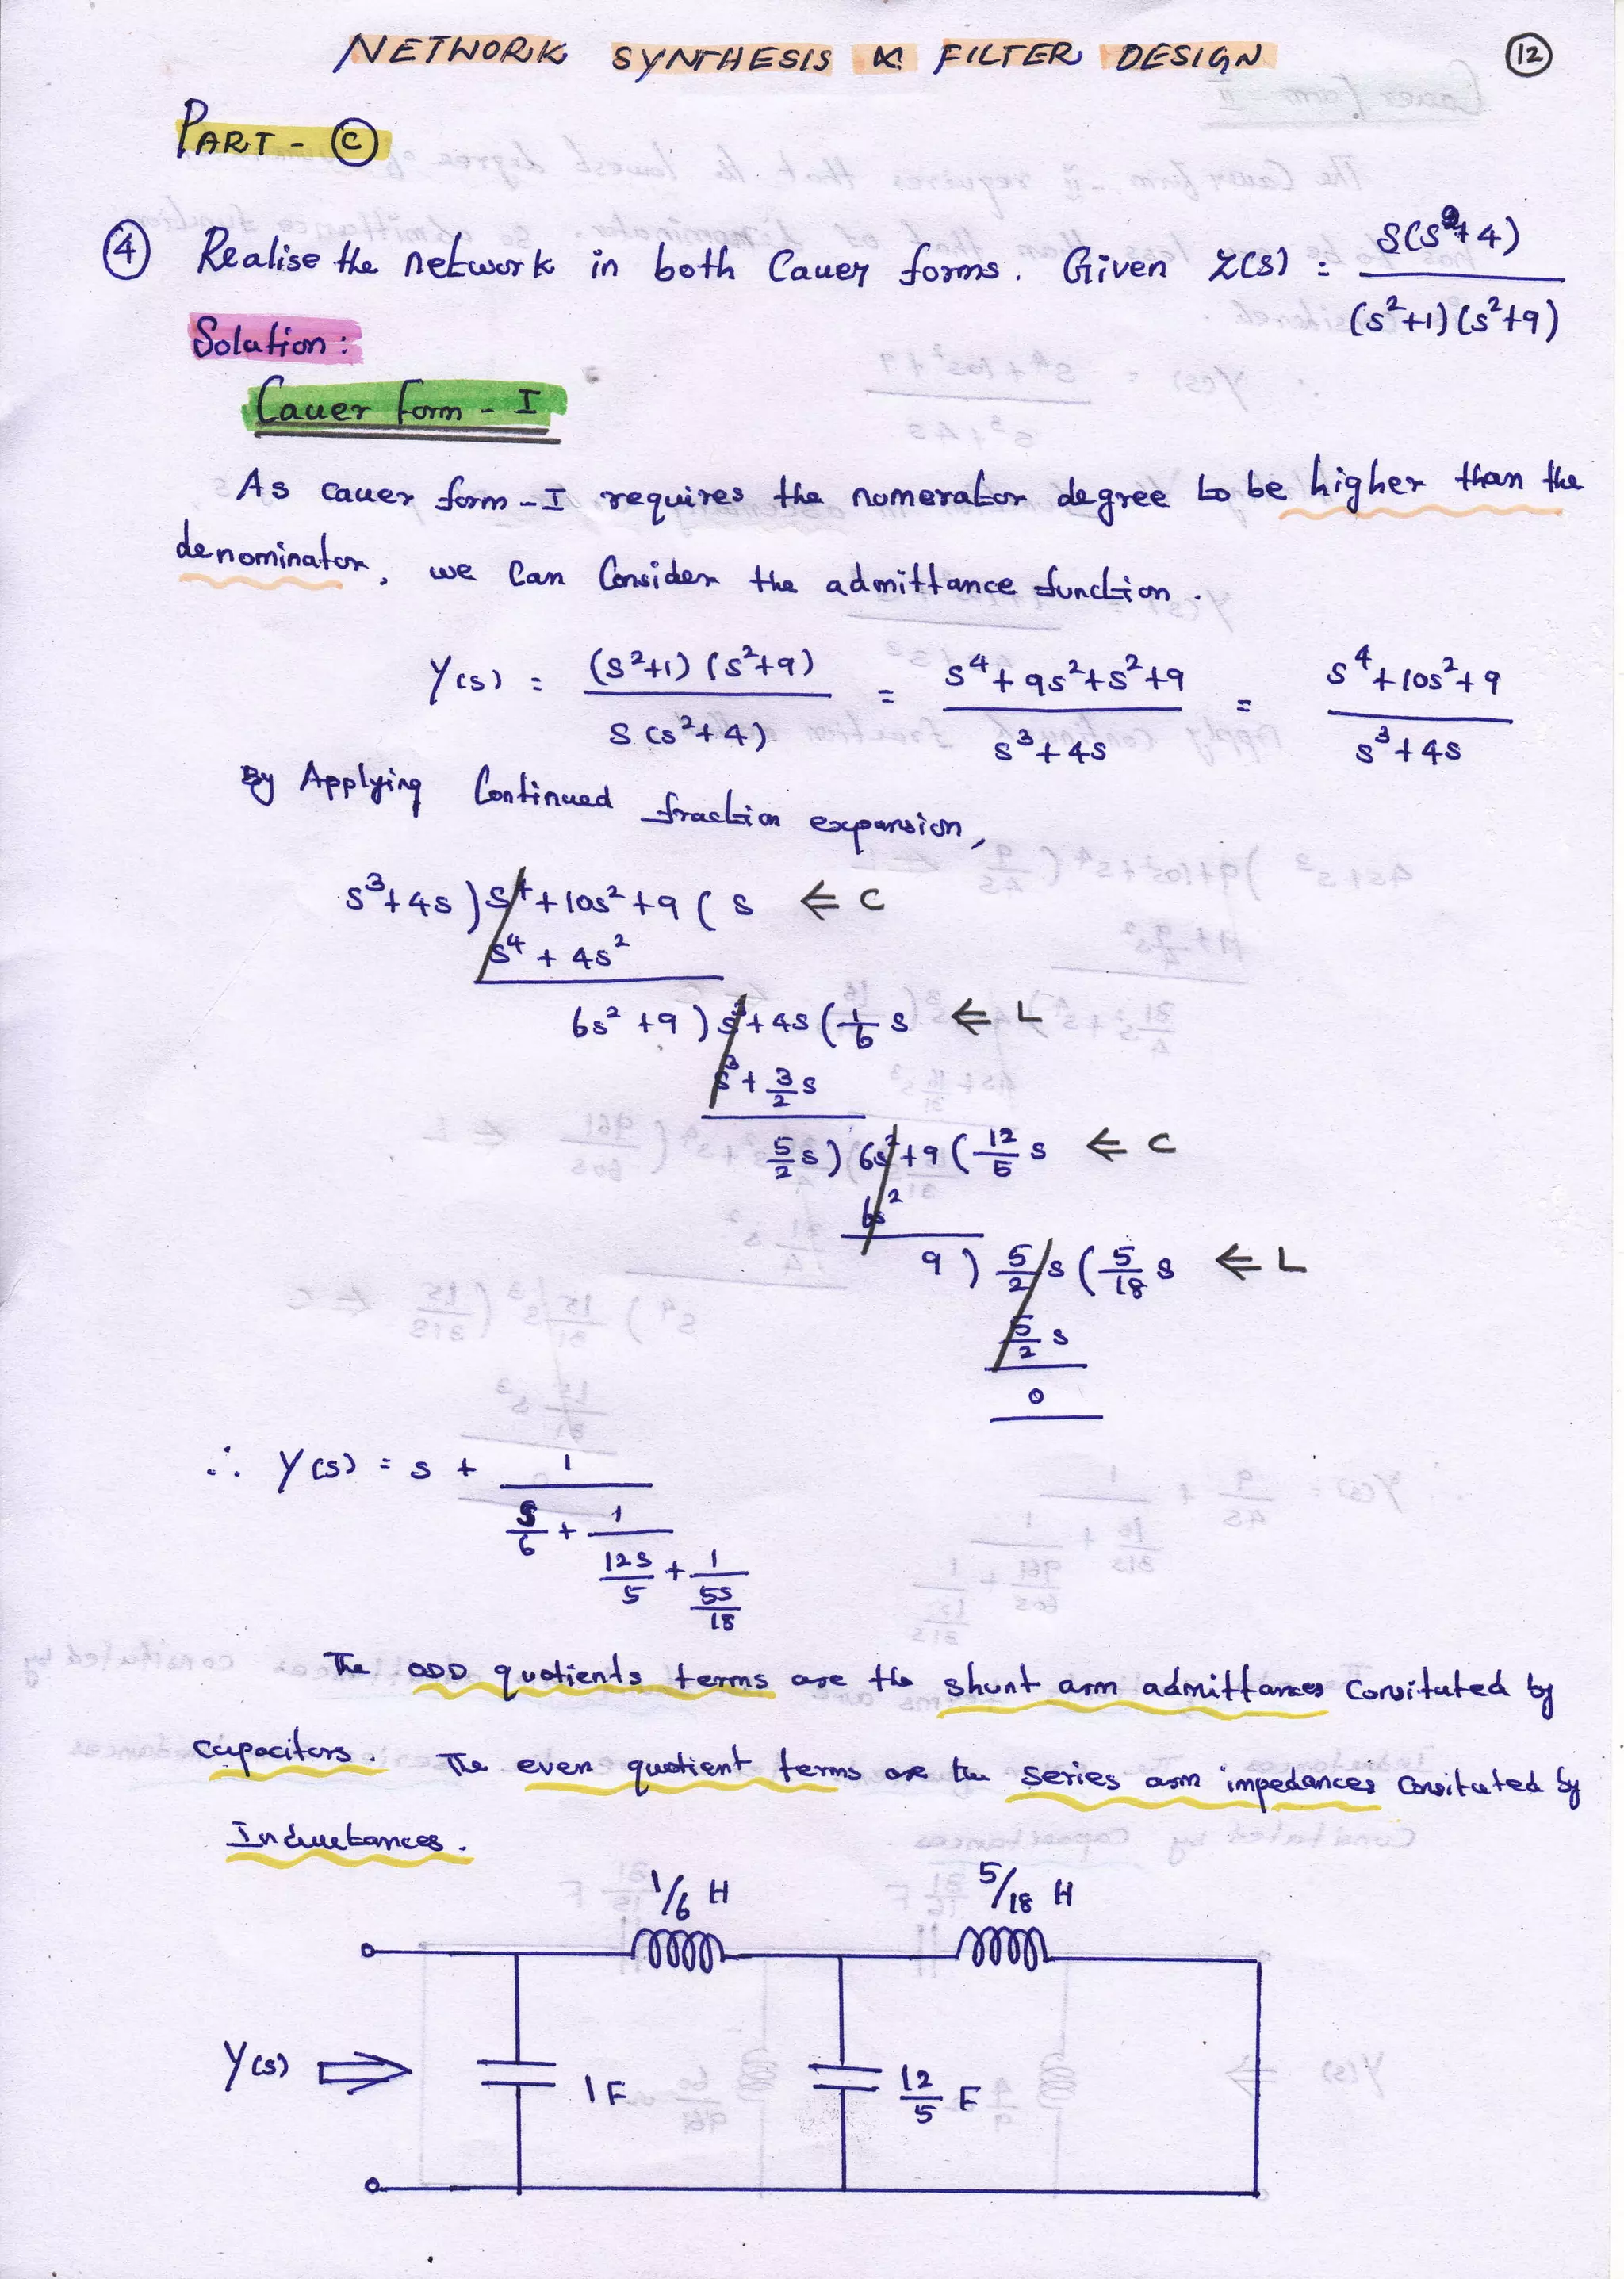 NETWORK SYNTHESIS & FILTER DESIGN 12
PART - C
4 Realise the network in both Cauer forms. Given Z(s) = S(S²+4) / (s²+1)(s²+9)
Solution:
Cauer form - I
As cauer form - I requires the numerator degree to be higher than the
denominator, we can Consider the admittance function.
Y(s) = (s²+1)(s²+9) / S(s²+4) = s⁴+9s²+s²+9 / s³+4s = s⁴+10s²+9 / s³+4s
By Applying Continued fraction expansion,
s³+4s ) s⁴+10s²+9 ( s ⇐ C
s⁴ + 4s²
6s²+9 ) s³+4s ( 1/6 s ⇐ L
s³ + 3/2 s
5/2 s ) 6s²+9 ( 12/5 s ⇐ C
6s²
9 ) 5/2 s ( 5/18 s ⇐ L
5/2 s
0
∴ Y(s) = s + 1
s/6 + 1
12s/5 + 1
5s/18
The ODD quotients terms are the shunt arm admittances Consituted by
capacitors. The even quotient terms are the series arm impedances Consituted by
Inductances.
1/6 H 5/18 H
Y(s) ⇒ 1F 12/5 F